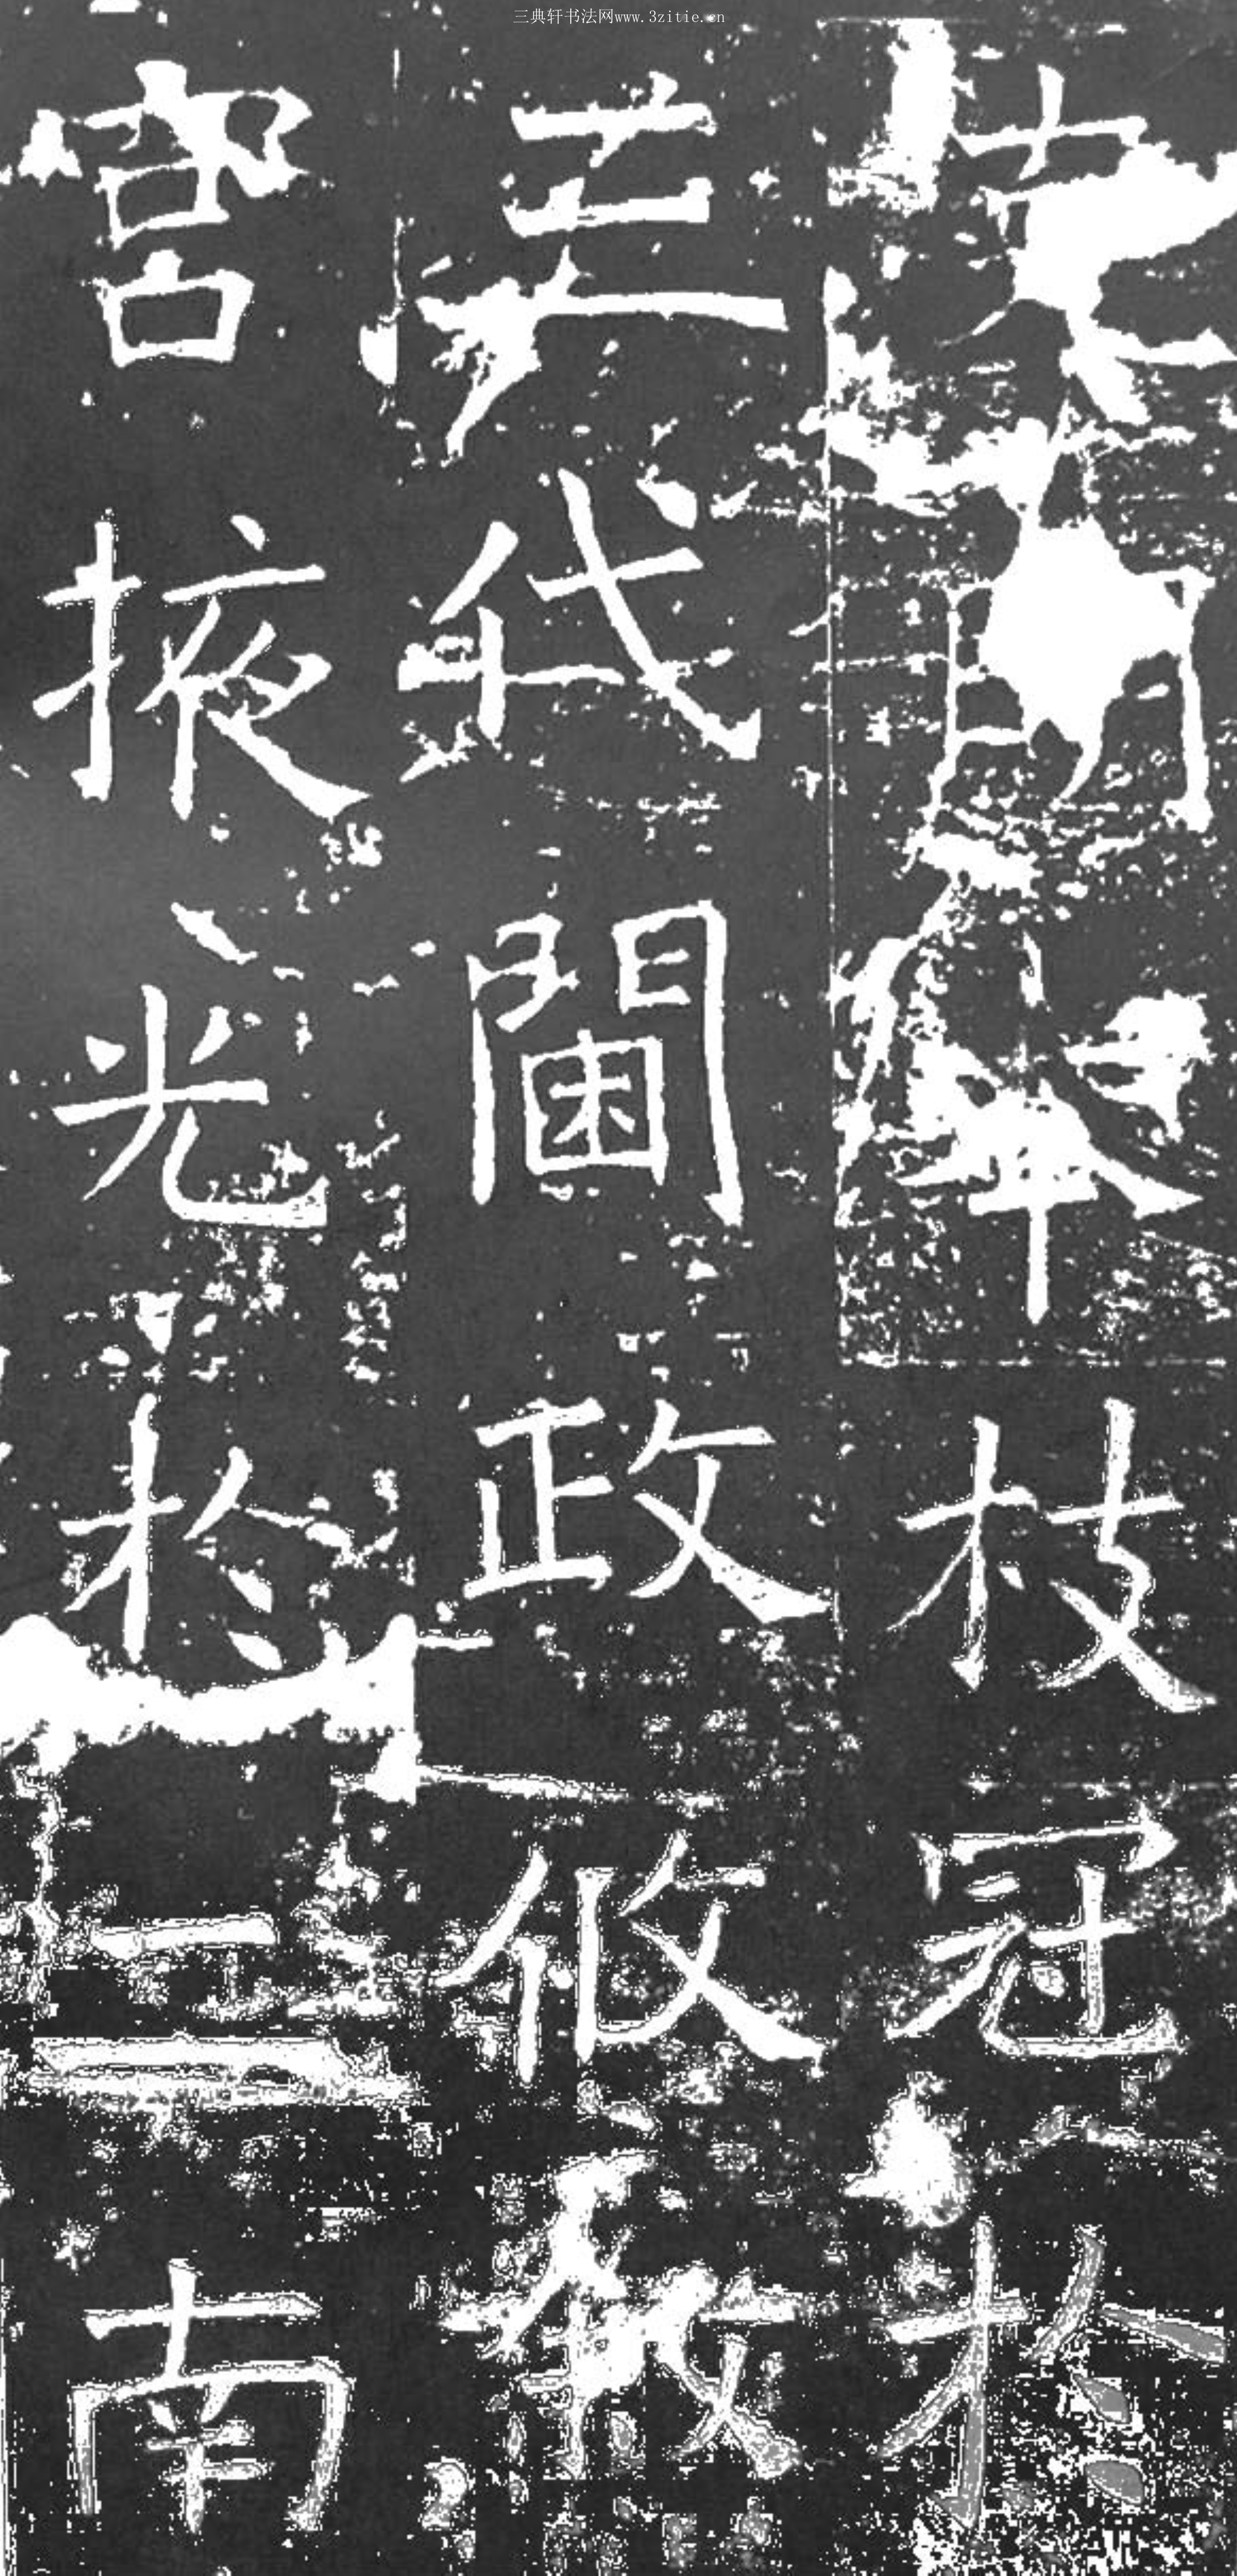 三典轩书法网www.3zitie.cn
本枝冠於
三代閫政攸敘
宮掖光於二南